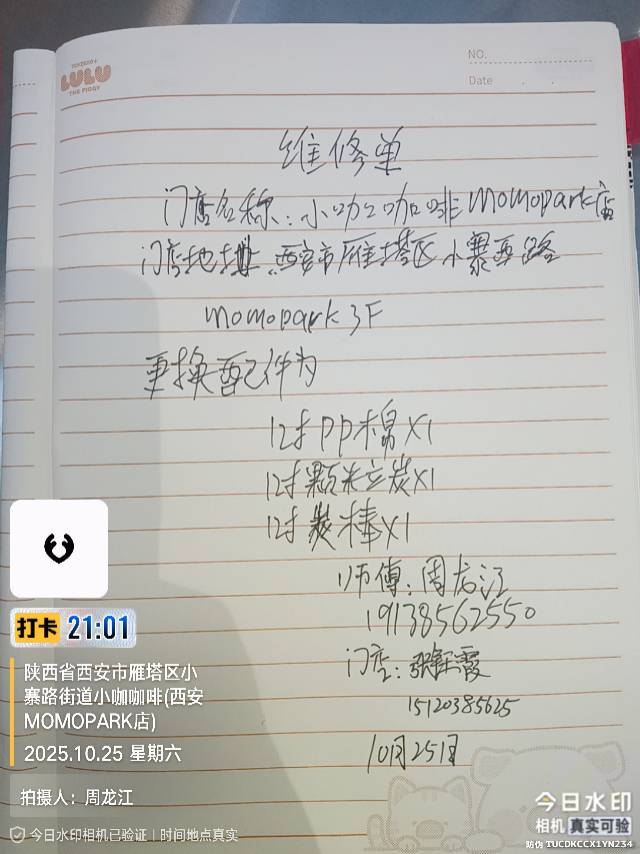 TUKKKKO+
LULU
THE PIGGY
NO.
Date
维修单
门店名称:小咖咖啡momopark店
门店地址:西安市雁塔区小寨西路
momopark 3F
更换配件为
12寸PP棉X1
12寸颗粒炭X1
12寸炭棒X1
师傅:周龙江
19138562550
门店:张红霞
15120385625
10月25日
打卡 21:01
陕西省西安市雁塔区小
寨路街道小咖咖啡(西安
MOMOPARK店)
2025.10.25 星期六
拍摄人:周龙江
今日水印相机已验证 | 时间地点真实
今日水印
相机 真实可验
防伪 TUCDKCCX1YN234